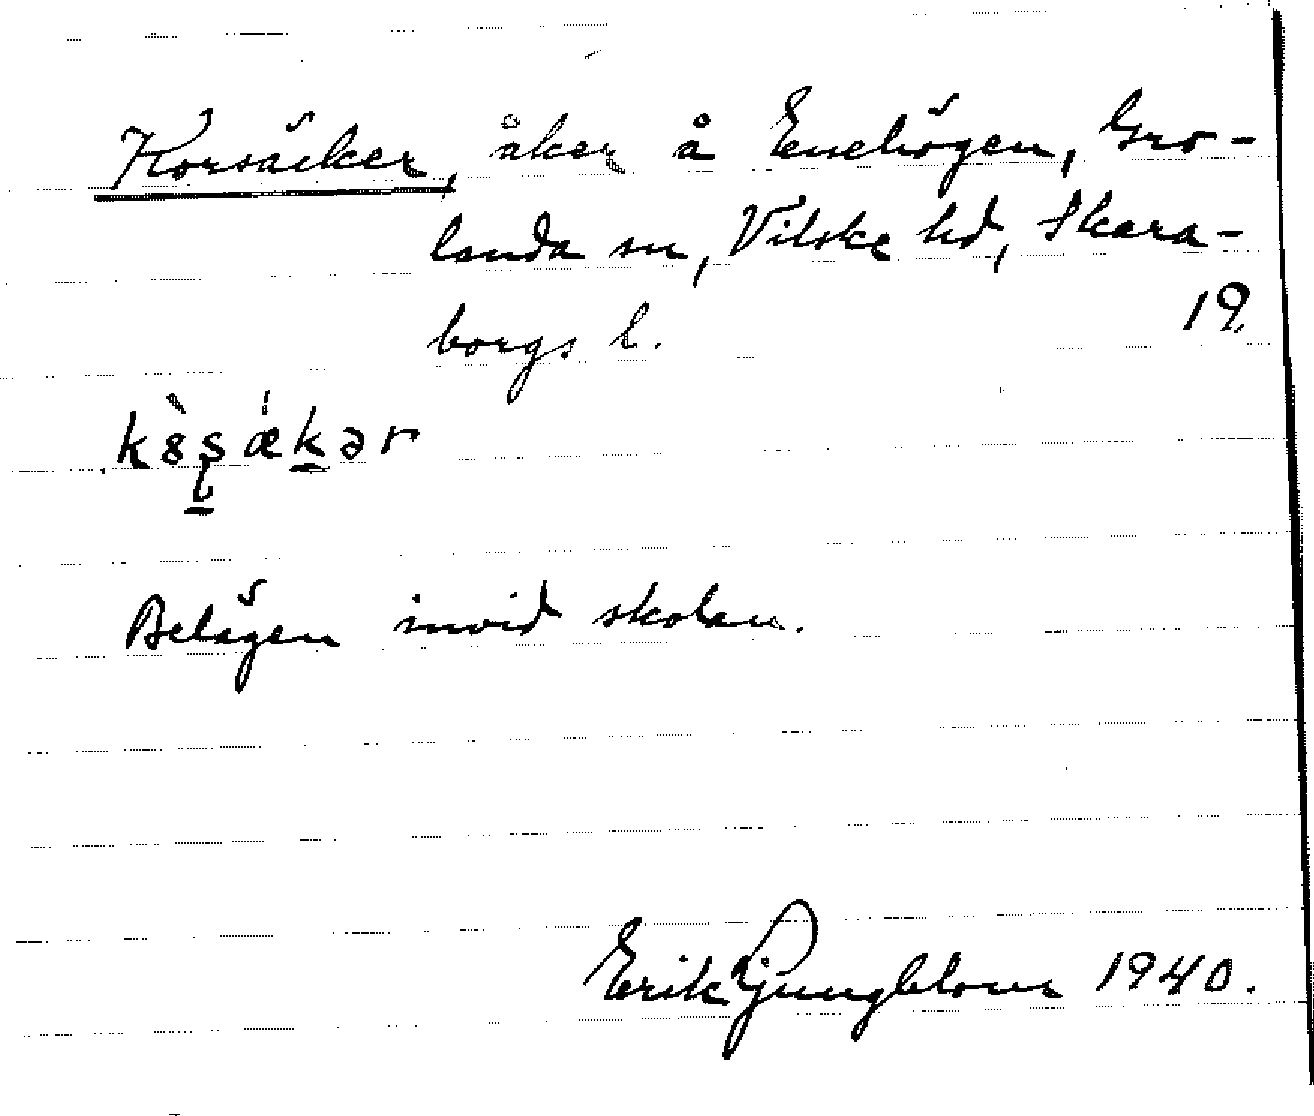 Korsäcker, åker å Enehögen, Gro-
landa sn, Vilske hd, Skara-
borgs l.
19
Belägen invid skolan.
Erik Ljungblom 1940.